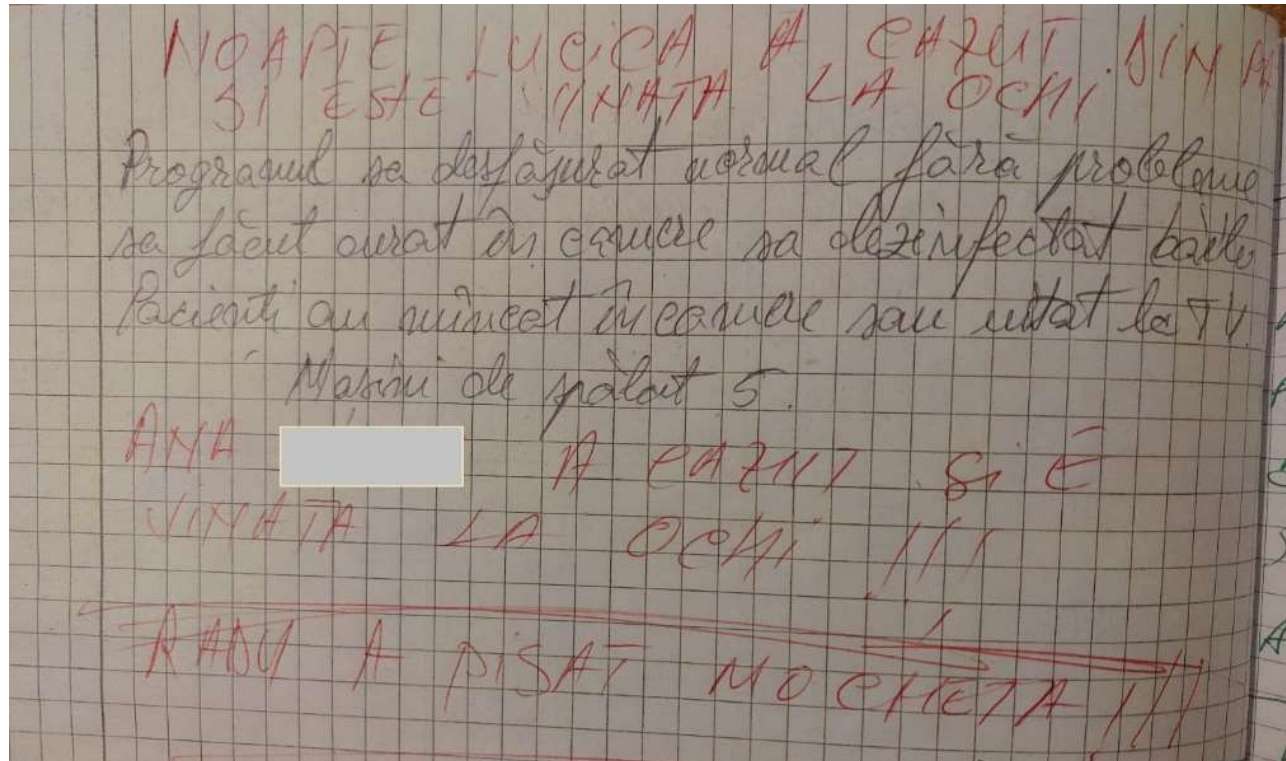 NOAPTE LUCICA A CAZUT DIN
SI ESTE VINATA LA OCHI
Programul sa desfășurat normal fără probleme
sa făcut curat în camere sa dezinfectat băile
Pacienți au mîncat în camere sau uitat la TV.
Mașini de spălat 5.
ANA A CAZUT Si E
VINATA LA OCHi !!!
RADU A PiSAT MOCHETA !!!